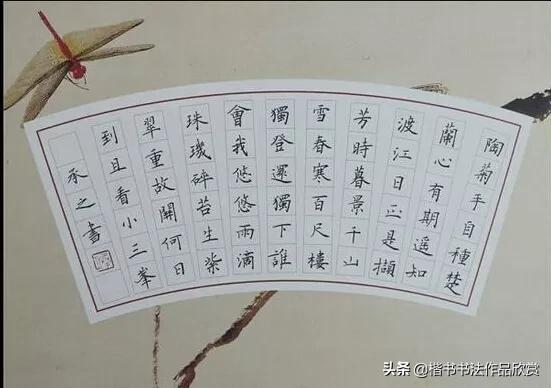 陶菊手自種楚
蘭心有期遥知
渡江日正是擷
芳時暮景千山
雪春寒百尺樓
獨登還獨下誰
會我悠悠雨滴
珠璣碎苔生紫
翠重故關何日
到且看小三峯
承之書
头条 @楷书书法作品欣赏